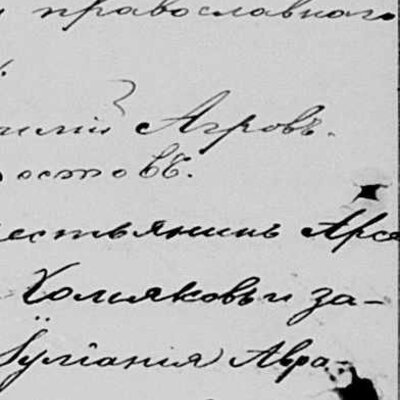 православнаго
Агровъ.
остовъ.
естьянинъ Арсе
Холмяковъ и за-
Іулiанiя Авра-